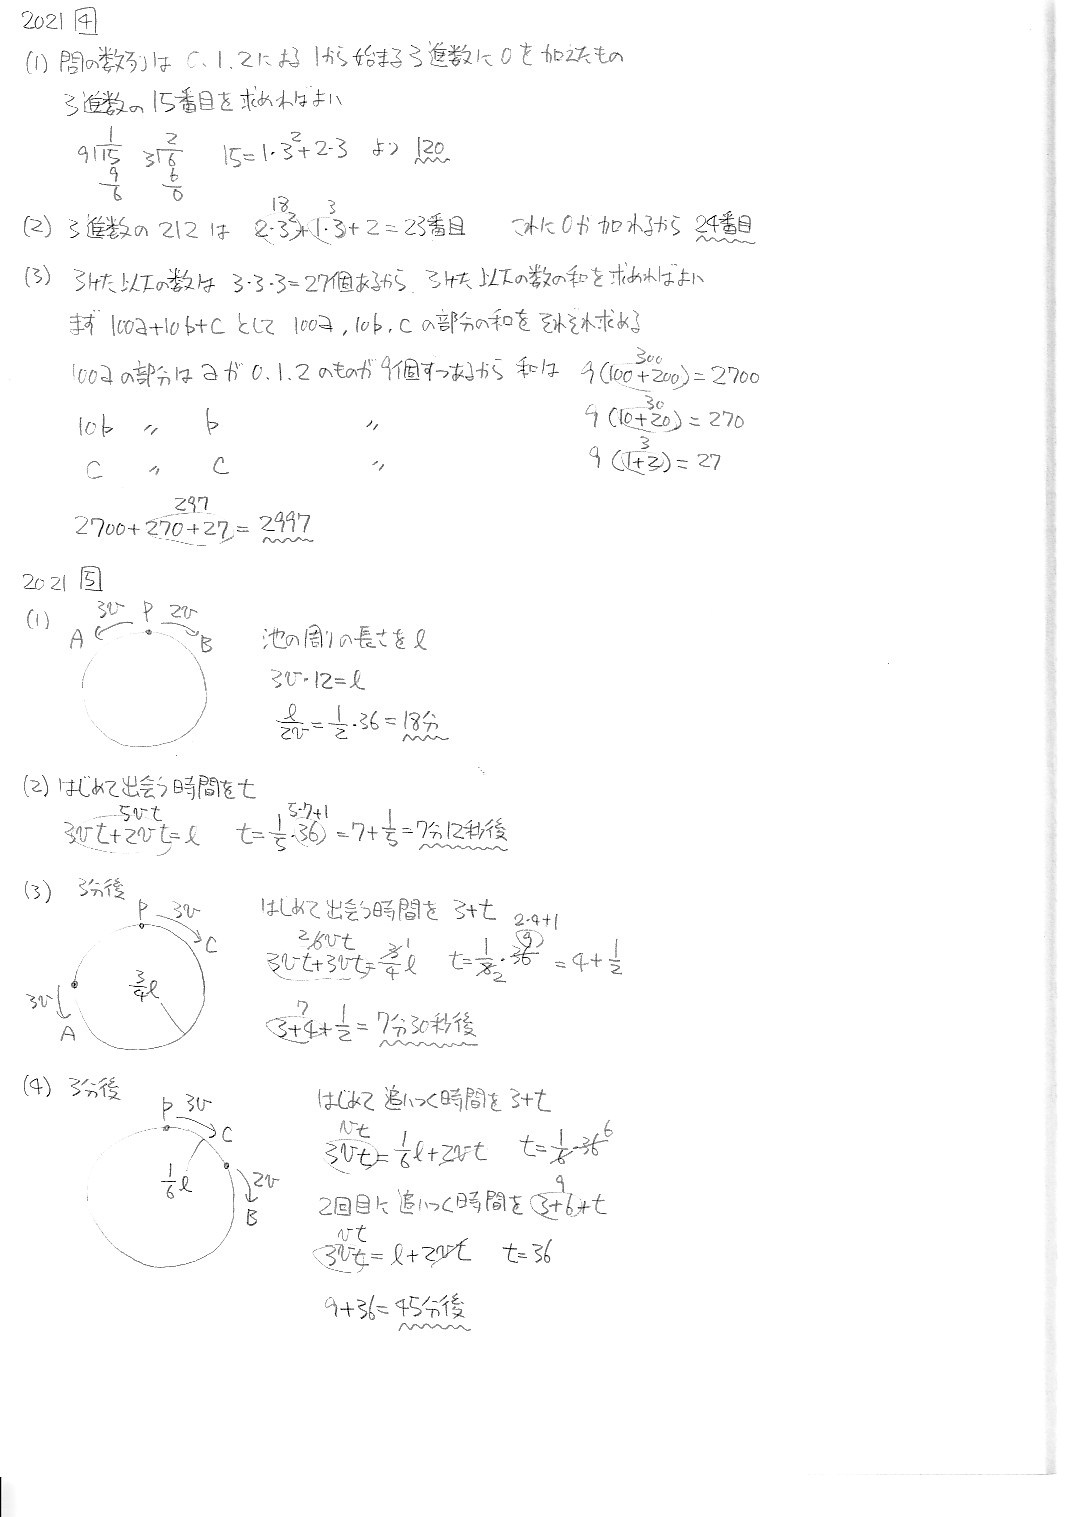 2021 4
(1) 問の数列は 0、1、2による 1から始まる3進数に0を加えたもの
3進数の15番目を求めればよい
9)15 1 9 6  3)6 2 6 0  15=1・3²+2・3 より 120
(2) 3進数の 212 は 2・3²+1・3+2=23番目 これに0が加わるから 24番目
18 3
(3) 3けた以下の数は 3・3・3=27個あるから、3けた以下の数の和を求めればよい
まず 100a+10b+c として 100a, 10b, c の部分の和をそれぞれ求める
100aの部分は aが 0、1、2 のものが 9個ずつあるから 和は 9(100+200)=2700
300
10b 〃 b 〃 9(10+20)=270
30
c 〃 c 〃 9(1+2)=27
3
2700+270+27=2997
297
2021 5
(1) 3v P 2v
A B
池の周りの長さを l
3v・12=l
l/2v=1/2・36=18分
(2) はじめて出会う時間を t
5vt 5・7+1
3vt+2vt=l t=1/5・36=7+1/5=7分12秒後
(3) 3分後
P 3v C
3v A
3/4 l
はじめて出会う時間を 3+t
2 6vt 1 9 2・4+1
3vt+3vt=3/4 l t=1/8・36=4+1/2
2
7
3+4+1/2=7分30秒後
(4) 3分後
P 3v C
1/6 l
2v B
はじめて追いつく時間を 3+t
vt
3vt=1/6 l+2vt t=1/6・36 6
2回目に追いつく時間を 3+6+t
9
vt
3vt=l+2vt t=36
9+36=45分後